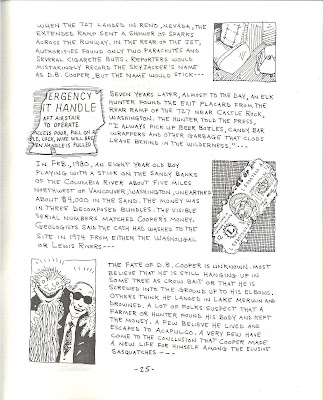 WHEN THE 727 LANDED IN RENO, NEVADA, THE
EXTENDED RAMP SENT A SHOWER OF SPARKS
ACROSS THE RUNWAY. IN THE REAR OF THE JET,
AUTHORITIES FOUND ONLY TWO PARACHUTES AND
SEVERAL CIGARETTE BUTS. REPORTERS WOULD
MISTAKINGLY RECORD THE SKYJACKER'S NAME
AS D.B. COOPER, BUT THE NAME WOULD STICK---
ERGENCY
IT HANDLE
AFT AIRSTAIR
TO OPERATE
ACCESS DOOR, PULL ON
WHEN HANDLE IS PULLED
SEVEN YEARS LATER, ALMOST TO THE DAY, AN ELK
HUNTER FOUND THE EXIT PLACARD FROM THE
REAR RAMP OF THE 727 NEAR CASTLE ROCK,
WASHINGTON. THE HUNTER TOLD THE PRESS,
"I ALWAYS PICK UP BEER BOTTLES, CANDY BAR
WRAPPERS AND OTHER GARBAGE THAT CLODS
LEAVE BEHIND IN THE WILDERNESS."---
IN FEB., 1980, AN EIGHT YEAR OLD BOY
PLAYING WITH A STICK ON THE SANDY BANKS
OF THE COLUMBIA RIVER ABOUT FIVE MILES
NORTHWEST OF VANCOUVER, WASHINGTON, UNEARTHED
ABOUT $4,000 IN THE SAND. THE MONEY WAS
IN THREE DECOMPOSED BUNDLES. THE VISIBLE
SERIAL NUMBERS MATCHED COOPER'S MONEY.
GEOLOGISTS SAID THE CASH HAD WASHED TO THE
SITE IN 1974 FROM EITHER THE WASHOUGAL
OR LEWIS RIVERS---
THE FATE OF D.B. COOPER IS UNKNOWN. MOST
BELIEVE THAT HE IS STILL HANGING UP IN
SOME TREE AS CROW BAIT OR THAT HE IS
SCREWED INTO THE GROUND UP TO HIS ELBOWS.
OTHERS THINK HE LANDED IN LAKE MERWIN AND
DROWNED. A LOT OF FOLKS SUSPECT THAT A
FARMER OR HUNTER FOUND HIS BODY AND KEPT
THE MONEY. A FEW BELIEVE HE LIVED AND
ESCAPED TO ACAPULCO. A VERY FEW HAVE
COME TO THE CONCLUSION THAT COOPER MADE
A NEW LIFE FOR HIMSELF AMONG THE ELUSIVE
SASQUATCHES---
-25-